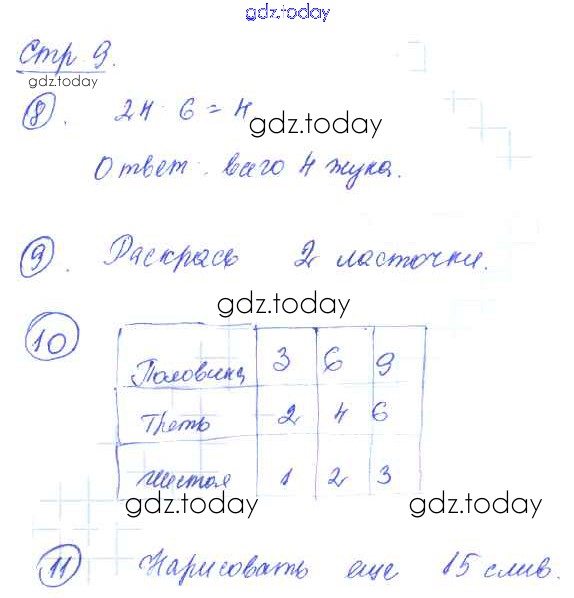 gdz.today
Стр 9.
gdz.today
8. 24 : 6 = 4
gdz.today
Ответ: всего 4 жука.
9. Раскрась 2 ласточки.
gdz.today
10
Половина 3 6 9
Треть 2 4 6
Шестая 1 2 3
gdz.today gdz.today
11 Нарисовать еще 15 слив.